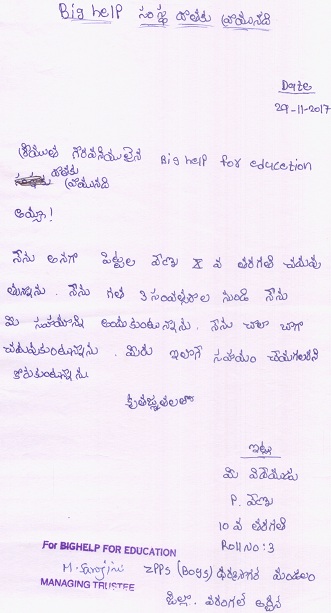 Big help సంస్థ దాతకు వ్రాయునది
Date
29-11-2017
శ్రీయుత గౌరవనీయులైన Big help for education
దాతకు
వ్రాయునది
అయ్యా!
నేను అనగా పిట్టల వేణు X వ తరగతి చదువు
తున్నాను. నేను గత 3 సంవత్సరాల నుండి నేను
మి సహాయాన్ని అందుకుంటున్నాను. నేను చాలా బాగా
చదువుకుంటున్నాను. మిరు ఇలాగే సహాయం చేయగలరని
కోరుకుంటున్నాను
కృతజ్ఞతలతో
ఇట్లు
మి విధేయుడు
P. వేణు
10 వ తరగతి
Roll No: 3
For BIGHELP FOR EDUCATION
M. Sarojini ZPPS (Boys) ధర్మసాగర్ మండలం
MANAGING TRUSTEE
జిల్లా. వరంగల్ అర్బన్